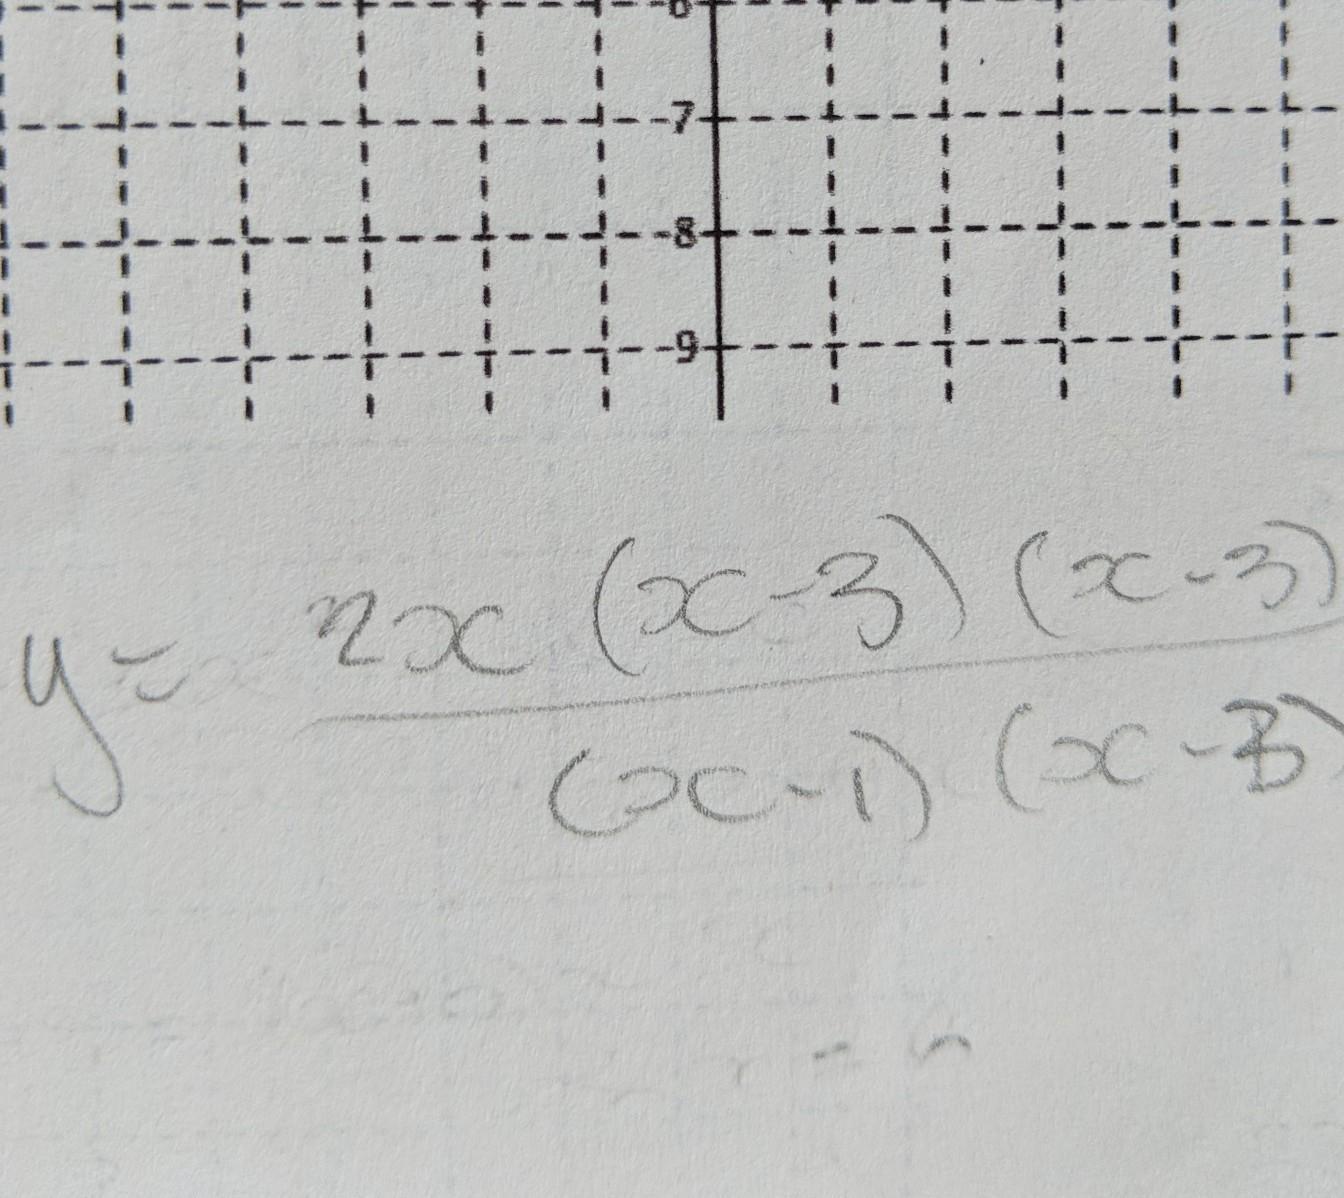 -6
-7
-8
-9
y = 2x (x-3) (x-3)
(x-1) (x-3)